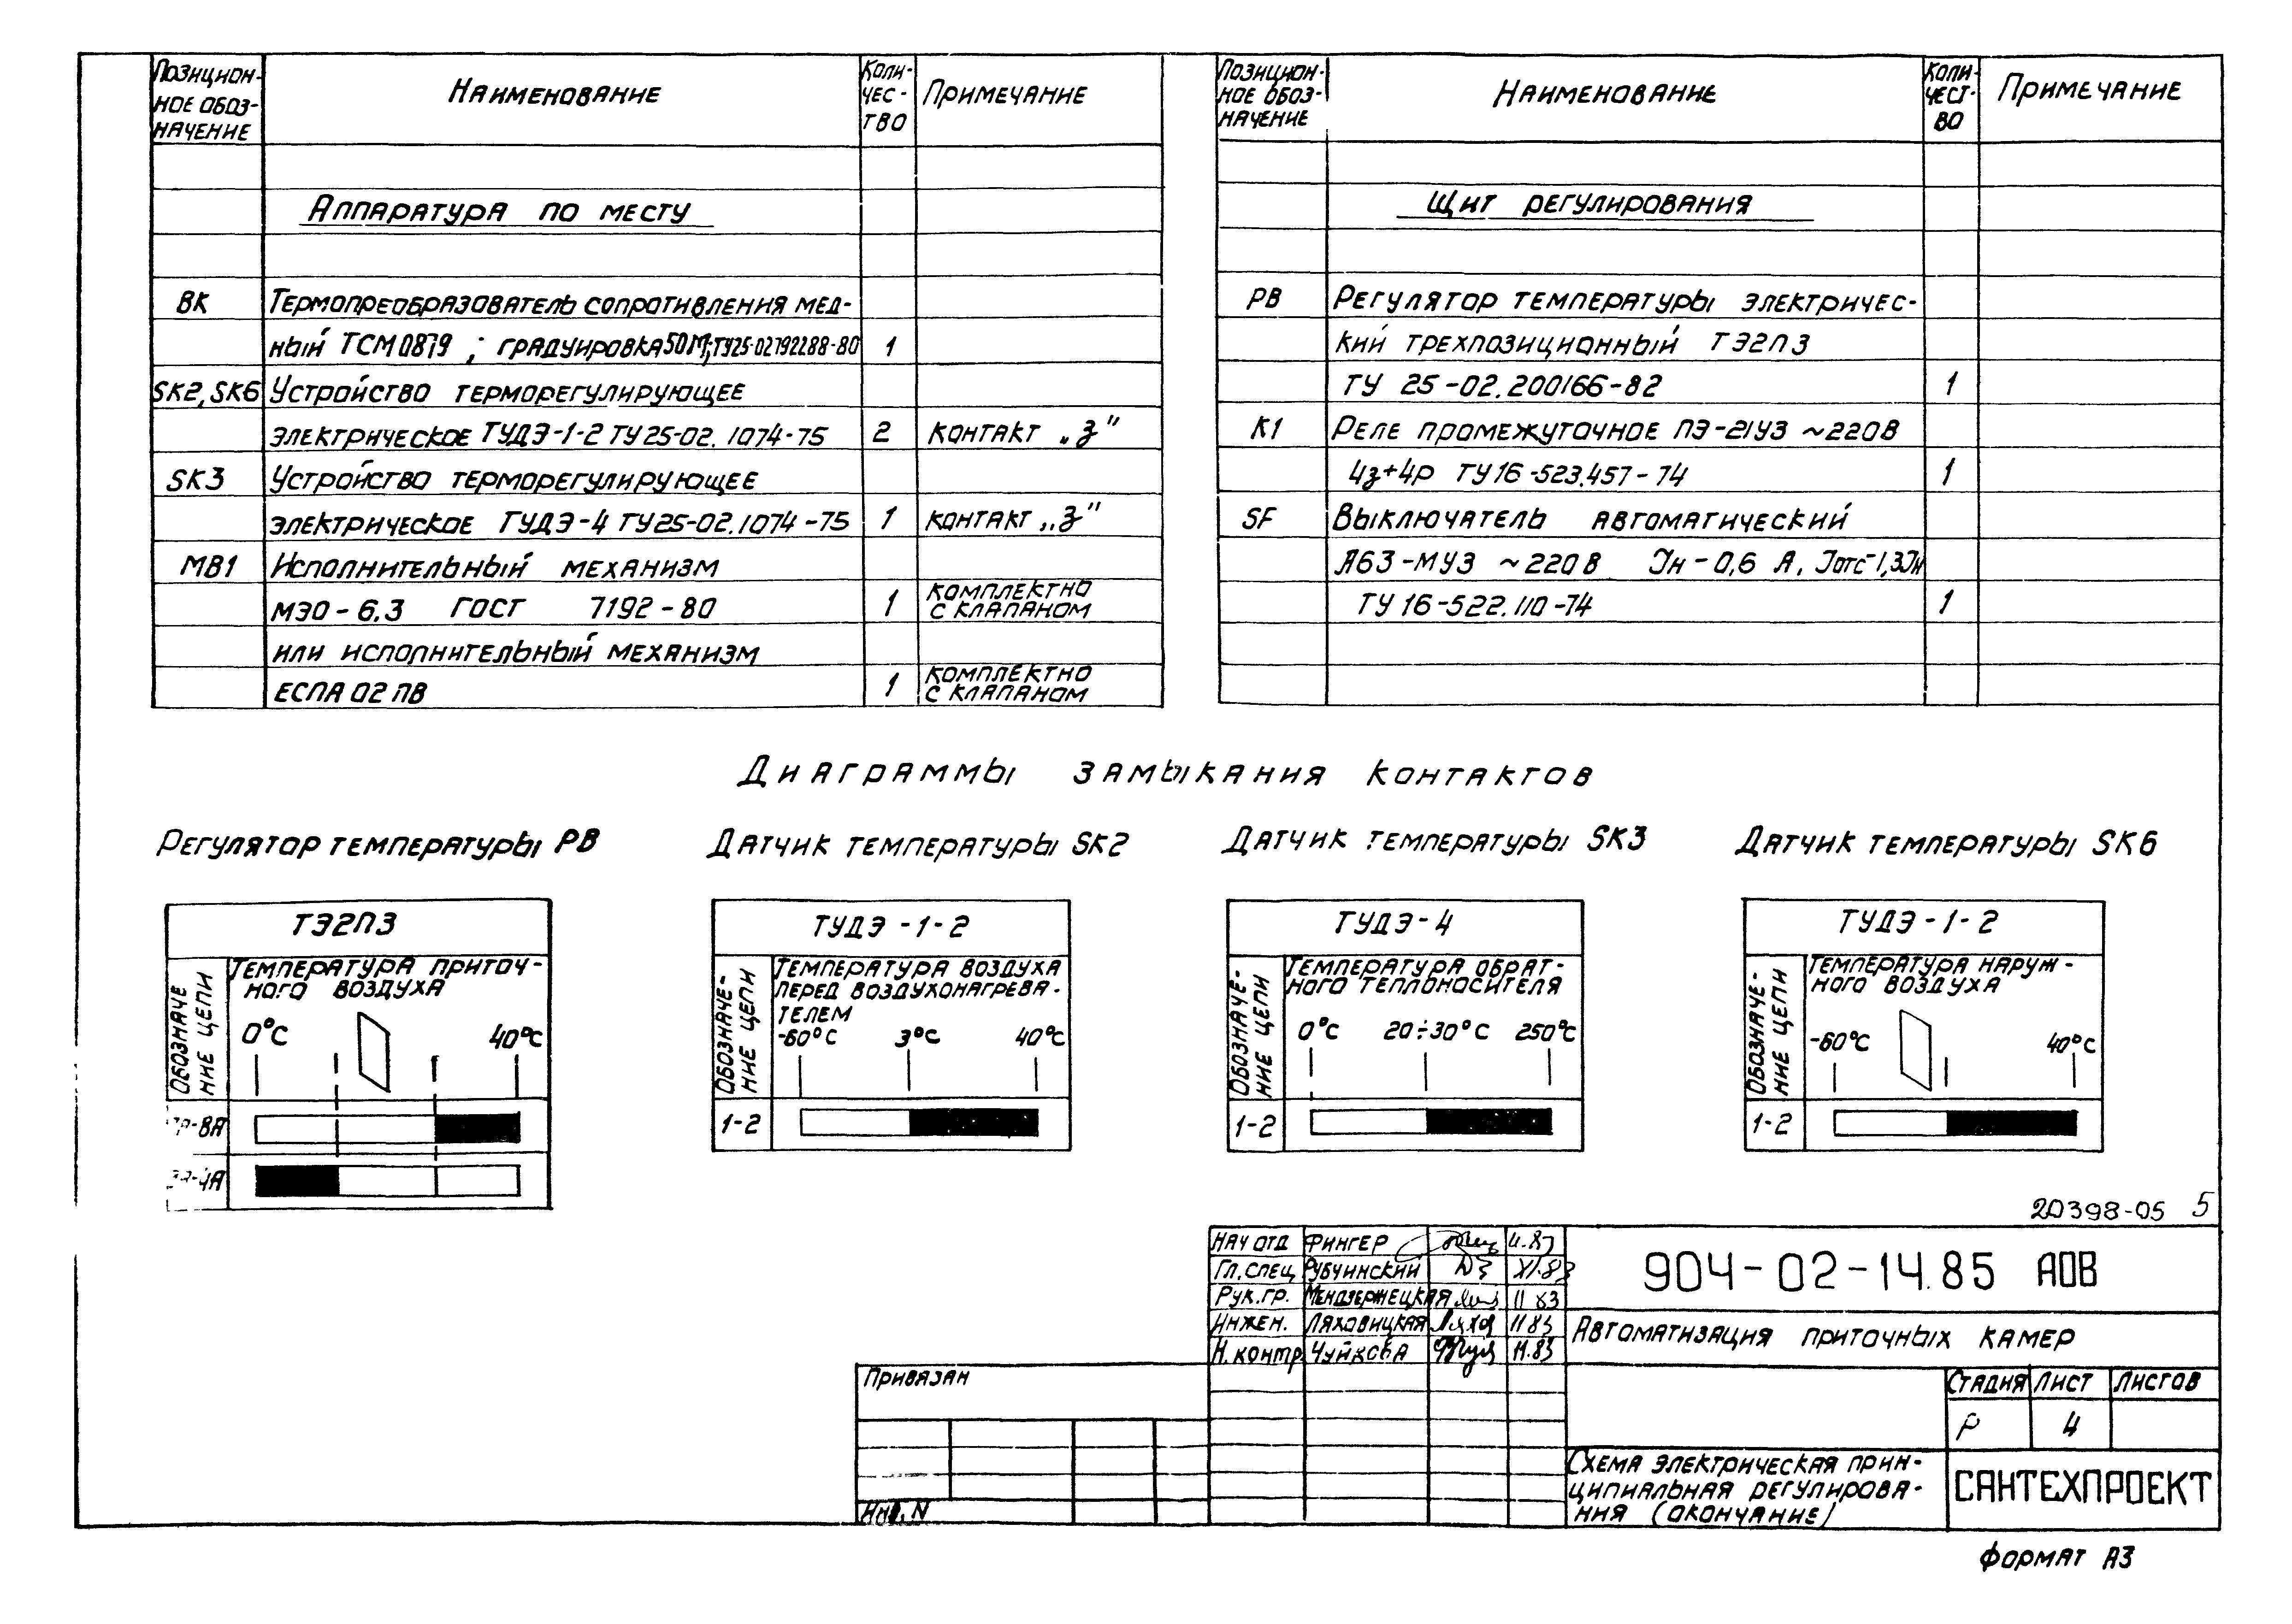 Позицион-
ное обоз-
начение
Наименование
Коли-
чес-
тво
Примечание
Аппаратура по месту
ВК Термопреобразователь сопротивления мед-
ный ТСМ0879 ; градуировка 50М; ТУ25-02792288-80 1
SK2, SK6 Устройство терморегулирующее
электрическое ТУДЭ-1-2 ТУ25-02.1074-75 2 контакт „З"
SK3 Устройство терморегулирующее
электрическое ТУДЭ-4 ТУ25-02.1074-75 1 контакт „З"
МВ1 Исполнительный механизм
МЭО-6,3 ГОСТ 7192-80 1 комплектно
с клапаном
или исполнительный механизм
ЕСПА 02 ПВ 1 комплектно
с клапаном
Позицион-
ное обоз-
начение
Наименование
Коли-
чест-
во
Примечание
Щит регулирования
РВ Регулятор температуры электричес-
кий трехпозиционный ТЭ2П3
ТУ 25-02.200166-82 1
К1 Реле промежуточное ПЭ-21У3 ~220В
4з+4р ТУ16-523.457-74 1
SF Выключатель автоматический
А63-МУ3 ~220В Iн-0,6 А, Iотс-1,3Iн
ТУ 16-522.110-74 1
Диаграммы замыкания контактов
Регулятор температуры РВ
ТЭ2П3
Обозначе
ние цепи
Температура приточ-
ного воздуха
0°С 40°С
Датчик температуры SK2
ТУДЭ-1-2
Обозначе-
ние цепи
Температура воздуха
перед воздухонагрева-
телем
-60°С 3°С 40°С
1-2
Датчик температуры SK3
ТУДЭ-4
Обозначе-
ние цепи
Температура обрат-
ного теплоносителя
0°С 20÷30°С 250°С
1-2
Датчик температуры SK6
ТУДЭ-1-2
Обозначе-
ние цепи
Температура наруж-
ного воздуха
-60°С 40°С
1-2
20398-05 5
Нач отд Фингер
Гл. спец Рубчинский XI.83
Рук. гр. Мендзержецкая 11 83
Инжен. Ляховицкая 11 83
Н. контр Чуйкова 11.83
904-02-14.85 АОВ
Автоматизация приточных камер
Стадия Лист Листов
Р 4
Схема электрическая прин-
ципиальная регулирова-
ния (окончание)
САНТЕХПРОЕКТ
Привязан
Инв. N
формат А3